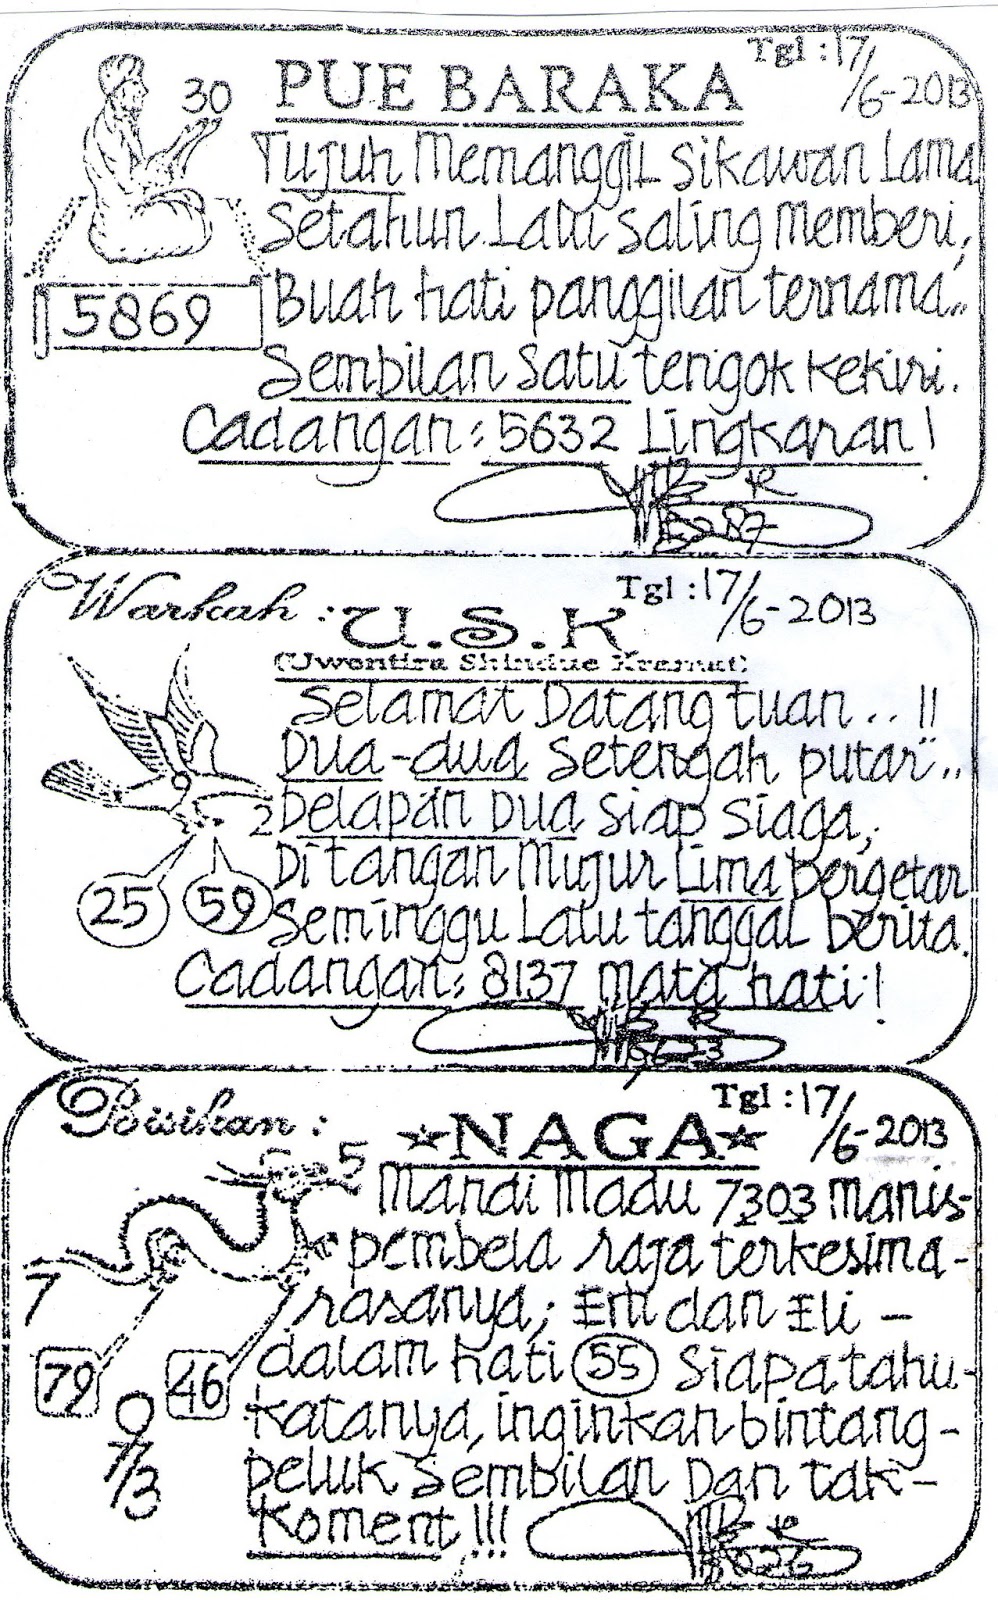 Tgl : 17/6-2013
PUE BARAKA
30
Tujuh Memanggil sikawan Lama
Setahun Lalu saling memberi,
Buah hati panggilan ternama..
5869
Sembilan satu tengok kekiri.
Cadangan : 5632 Lingkaran !
Tgl : 17/6-2013
Warkah : U.S.K
(Uwentira Shindue Kramat)
Selamat Datang tuan . . !!
Dua-dua setengah putar"..
9
2
Delapan Dua siap siaga,
Di tangan Mujur Lima bergetar
25 59
Seminggu Lalu tanggal berita.
Cadangan : 8137 mata hati !
Tgl : 17/6-2013
Bisikan :
★NAGA★
5
Mandi Madu 7303 manis-
pembela raja terkesima-
7
rasanya; Erti dan Eli -
dalam hati 55 siapa tahu-
79 46
katanya, inginkan bintang-
9
7/3
peluk sembilan Dan tak-
koment !!!